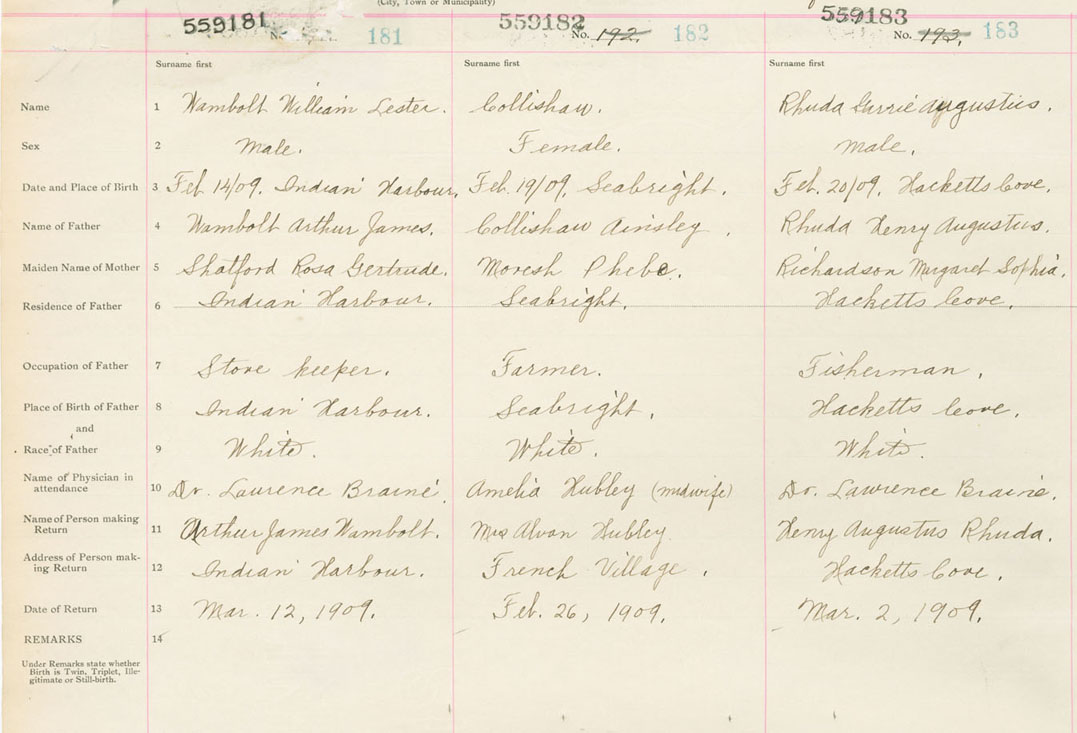 (City, Town or Municipality)
559181 559182 559183
181 No. 192. 182 No. 193. 183
Surname first Surname first Surname first
Name 1 Wambolt William Lester. Collishaw. Rhuda Garrie Augustus.
Sex 2 Male. Female. Male.
Date and Place of Birth 3 Feb 14/09. Indian Harbour. Feb. 19/09, Seabright. Feb. 20/09, Hacketts Cove.
Name of Father 4 Wambolt Arthur James. Collishaw Ainsley. Rhuda Henry Augustus.
Maiden Name of Mother 5 Shatford Rosa Gertrude. Moresh Phebe. Richardson Margaret Sophia.
Residence of Father 6 Indian Harbour. Seabright. Hacketts Cove.
Occupation of Father 7 Store keeper. Farmer. Fisherman.
Place of Birth of Father 8 Indian Harbour. Seabright. Hacketts Cove.
and
Race of Father 9 White. White. White.
Name of Physician in
attendance 10 Dr. Laurence Braine. Amelia Hubley (midwife) Dr. Lawrence Braine.
Name of Person making
Return 11 Arthur James Wambolt. Mrs Alvan Hubley Henry Augustus Rhuda.
Address of Person mak-
ing Return 12 Indian Harbour. French Village. Hacketts Cove.
Date of Return 13 Mar. 12, 1909. Feb. 26, 1909. Mar. 2, 1909.
REMARKS 14
Under Remarks state whether
Birth is Twin, Triplet, Ille-
gitimate or Still-birth.